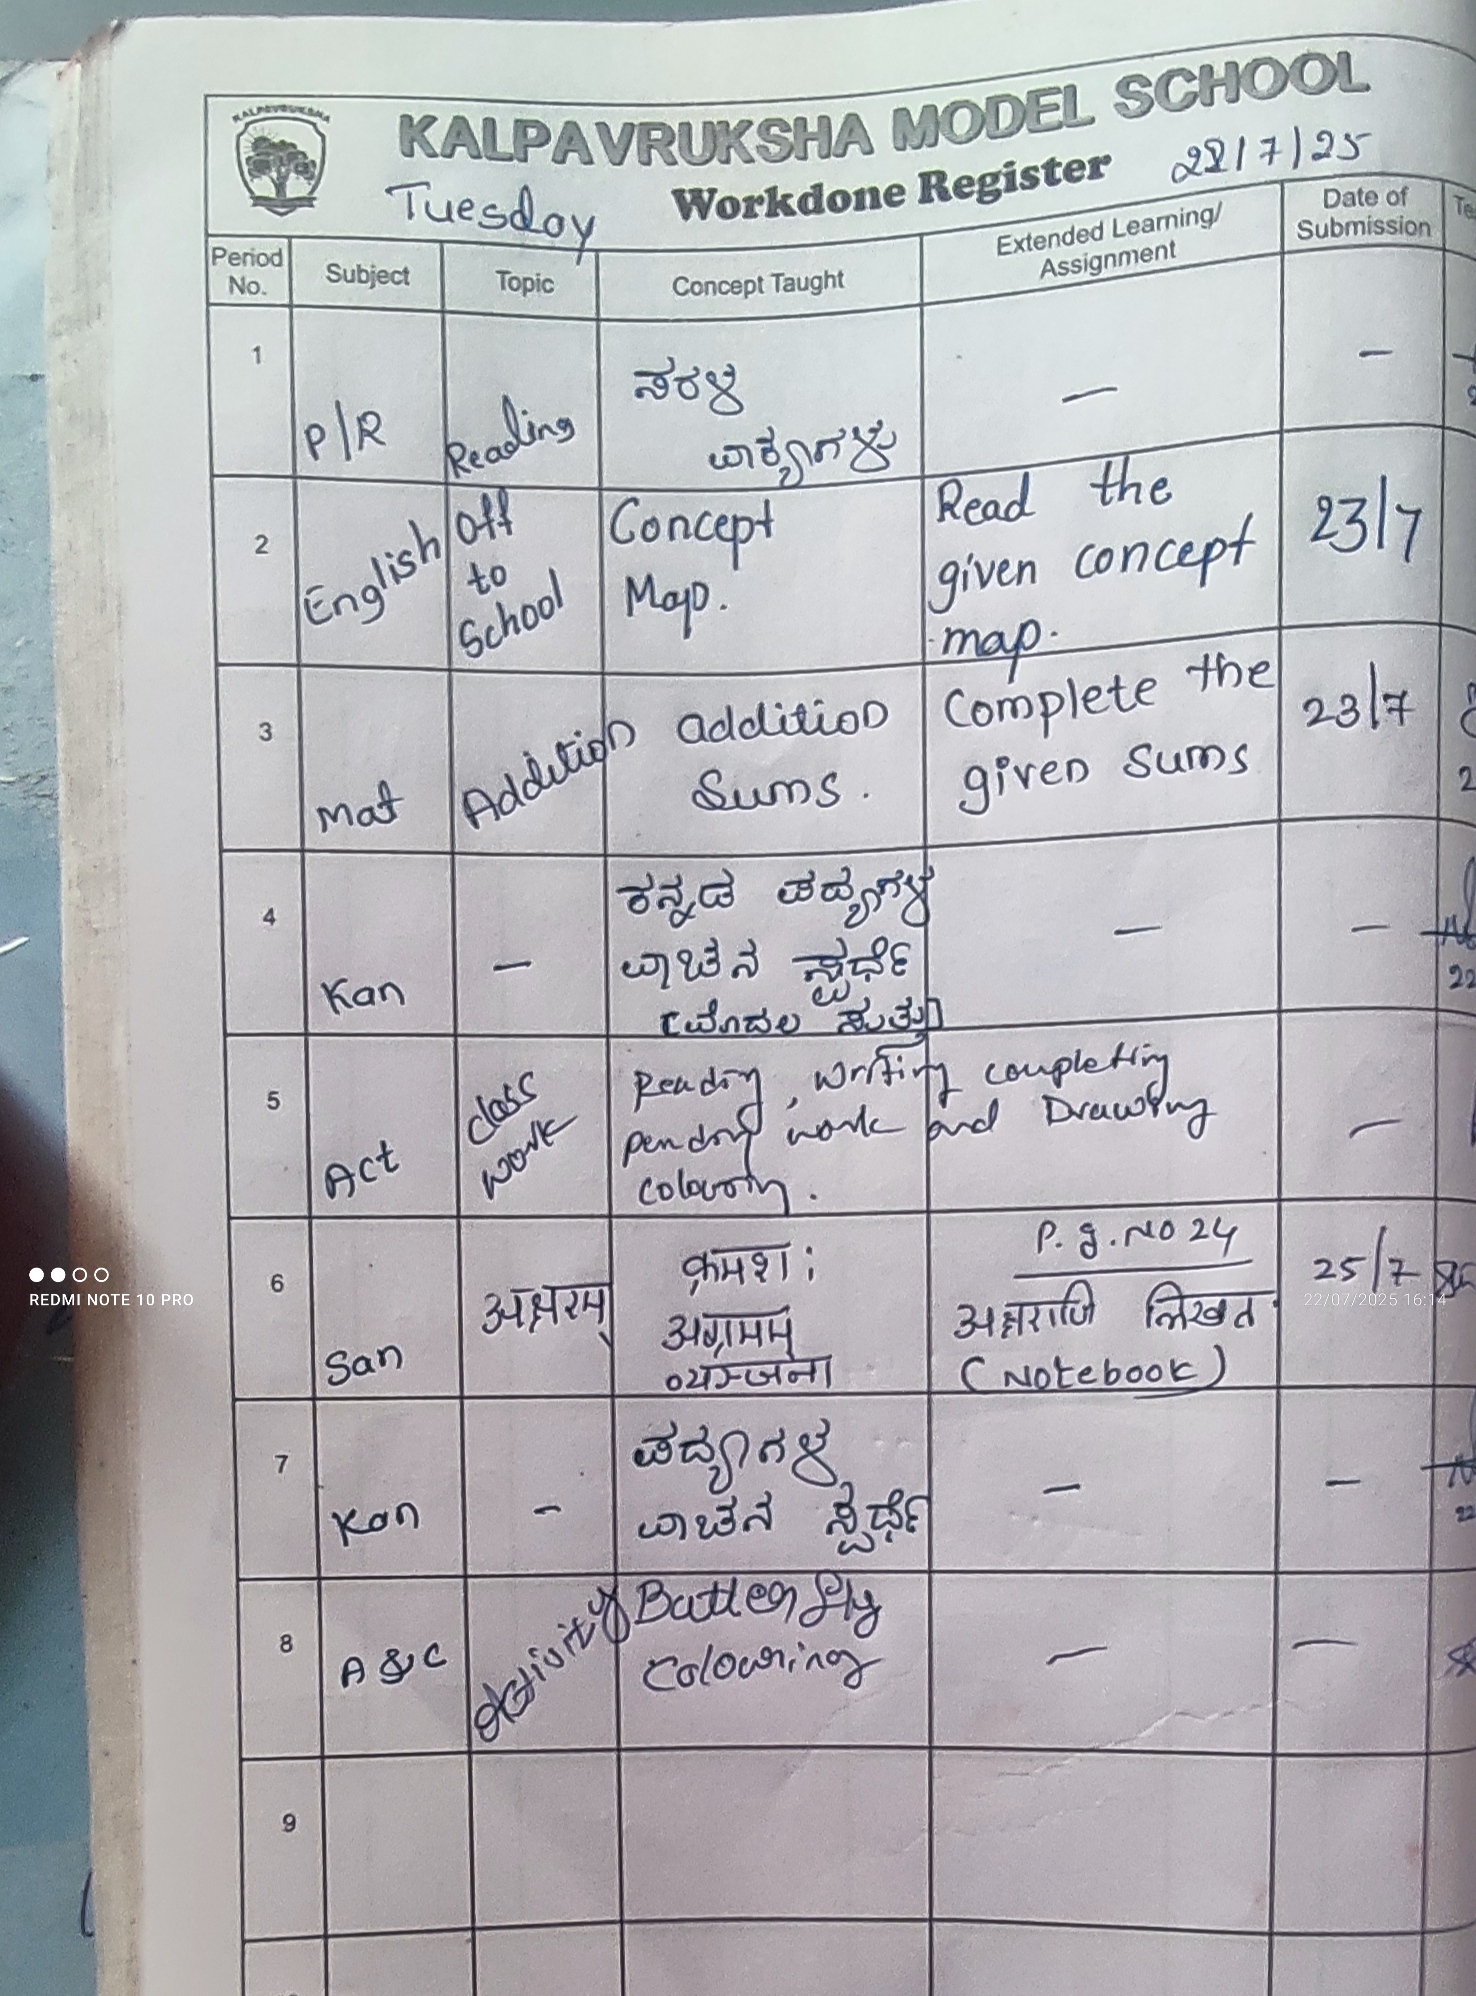 KALPAVRUKSHA
KALPAVRUKSHA MODEL SCHOOL
Tuesday Workdone Register 22/7/25
Period No. Subject Topic Concept Taught Extended Learning/ Assignment Date of Submission
1 P/R Reading ಸರಳ — —
ವಾಕ್ಯಗಳು
2 English Off to School Concept Map. Read the given concept map. 23/7
3 Mat Addition addition Sums. Complete the given sums 23/7
4 Kan — ಕನ್ನಡ ಪದ್ಯಗಳ — —
ವಾಚನ ಸ್ಪರ್ಧೆ
(ಮೊದಲ ಸುತ್ತು)
5 Act class work Reading, writing completing —
pending work and Drawing
colouring.
6 San अक्षरम् क्रमशः P.g.No 24 25/7
अक्षराणि लिखत
व्यञ्जना (Notebook)
7 Kan - ಪದ್ಯಗಳ — —
ವಾಚನ ಸ್ಪರ್ಧೆ
8 A & C Activity Butterfly — —
Colouring
9
REDMI NOTE 10 PRO
22/07/2025 16:14